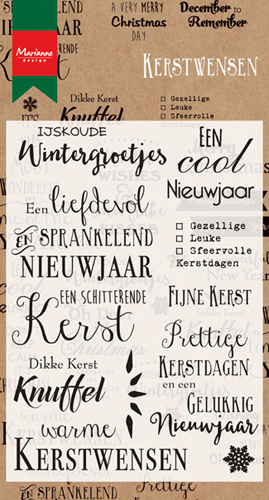 Marianne
design
A VERY MERRY
Christmas
DAY
December
to
Remember
KERSTWENSEN
Dikke Kerst
Knuffel
Gezellige
Leuke
Sfeervolle
IJSKOUDE
Wintergroetjes
EEN
cool
Nieuwjaar
Een liefdevol
ÉN SPRANKELEND
NIEUWJAAR
Gezellige
Leuke
Sfeervolle
Kerstdagen
EEN SCHITTERENDE
Kerst
FIJNE KERST
Prettige
KERSTDAGEN
en een
GELUKKIG
Nieuwjaar
Dikke Kerst
Knuffel
warme
KERSTWENSEN